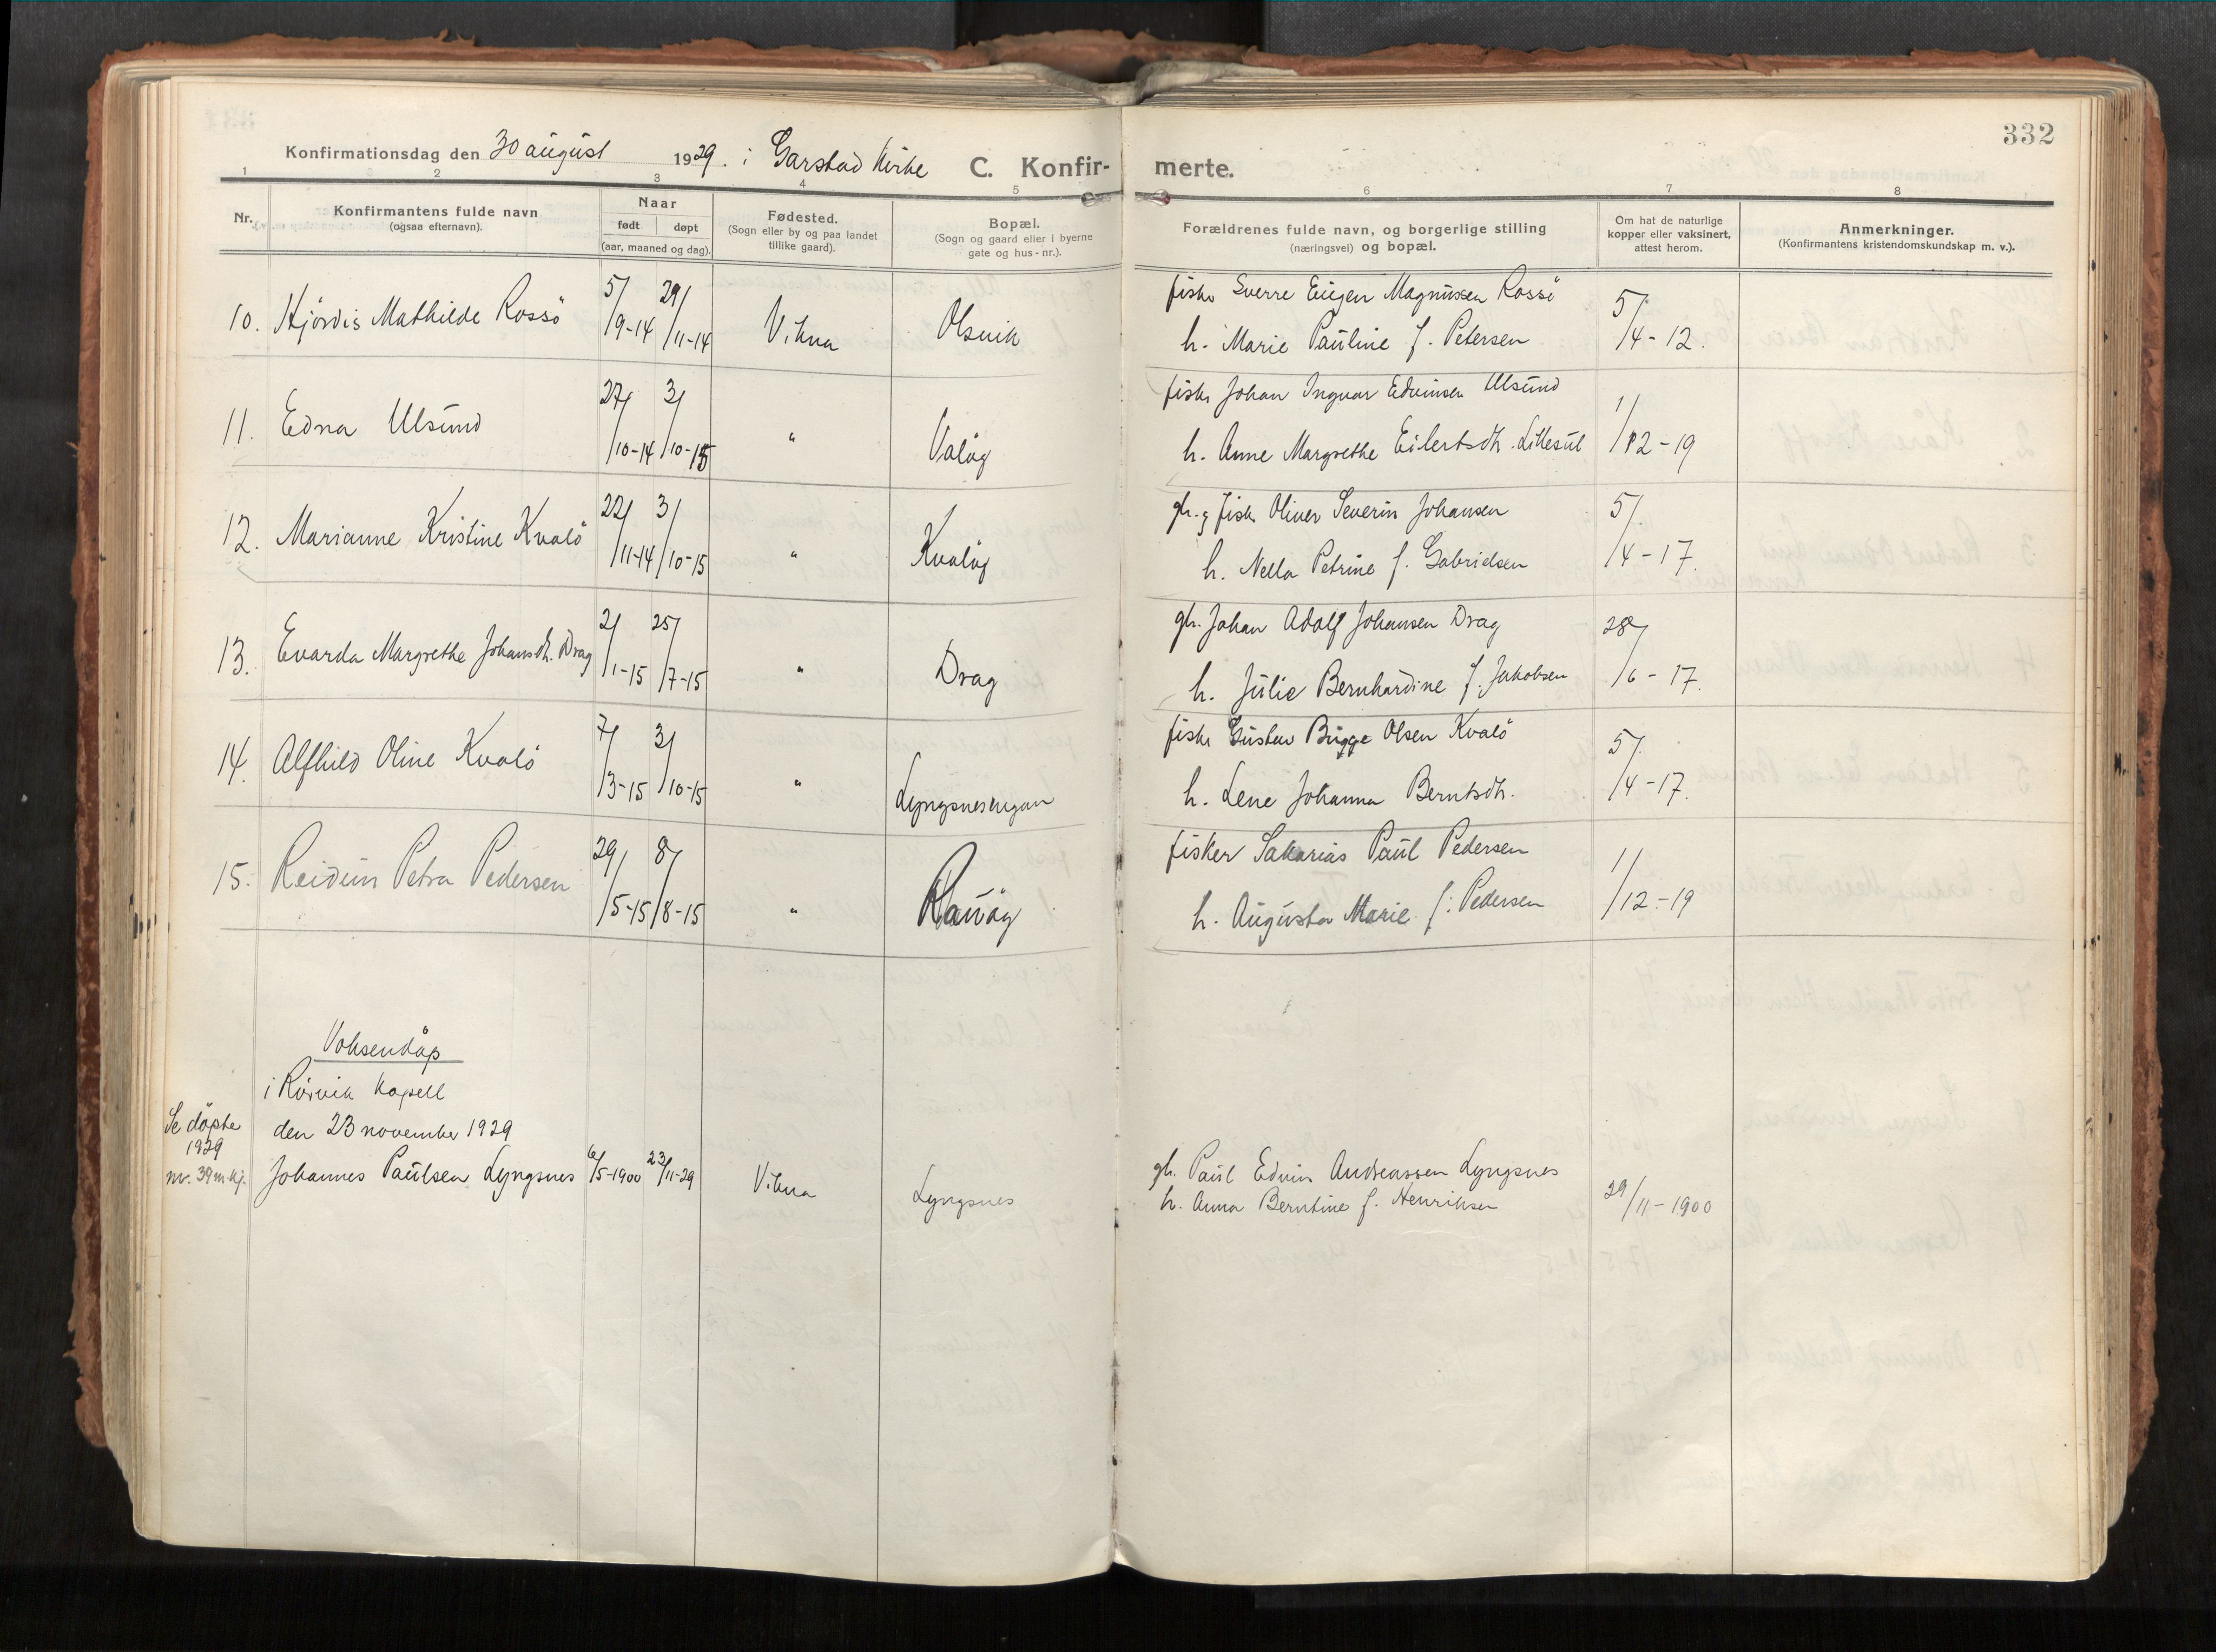 332
Konfirmationsdag den 30 august 1929. i Garstad Kirke C. Konfir- merte.
1 2 3 4 5 6 7 8
Nr. Konfirmantens fulde navn (ogsaa efternavn). Naar født døpt (aar, maaned og dag). Fødested. (Sogn eller by og paa landet tillike gaard). Bopæl. (Sogn og gaard eller i byerne gate og hus-nr.). Forældrenes fulde navn, og borgerlige stilling (næringsvei) og bopæl. Om hat de naturlige kopper eller vaksinert, attest herom. Anmerkninger. (Konfirmantens kristendomskundskap m. v.).
10. Hjördis Mathilde Rossö 5/9-14 29/11-14 Vikna Olsvik fisker Sverre Eugen Magnussen Rossö 5/4-12.
h. Marie Pauline f. Petersen
11. Edna Ulsund 27/10-14 3/10-15 " Valöy fisker Johan Ingvar Edvinsen Ulsund 1/12-19
h. Anne Margrethe Eilertsdtr.
12. Marianne Kristine Kvalö 22/11-14 3/10-15 " Kvalöy gbr. og fisk. Oliver Severin Johansen 5/4-17.
h. Nella Petrine f. Gabrielsen
13. Evarda Margrethe Johansdtr. Drag 2/1-15 25/7-15 " Drag gbr. Johan Adolf Johansen Drag 28/6-17.
h. Julie Bernhardine f. Jakobsen
14. Alfhild Oline Kvalö 7/3-15 3/10-15 " fisker Gustav Brygge Olsen Kvalö 5/4-17.
h. Lene Johanna Berntsdtr.
15. Reidun Petra Pedersen 29/5-15 8/8-15 " Rauöy fisker Sakarias Paul Pedersen 1/12-19
h. Augusta Marie f. Pedersen
Voksendåp
i Rörvik kapell
Se döpte den 23 november 1929
1929
nr. 39 m.kj. Johannes Paulsen Lyngsnes 6/5-1900 23/11-29 Vikna Lyngsnes gbr. Paul Edvin Andreassen Lyngsnes 29/11-1900
h. Anna Berntine f. Henriksen